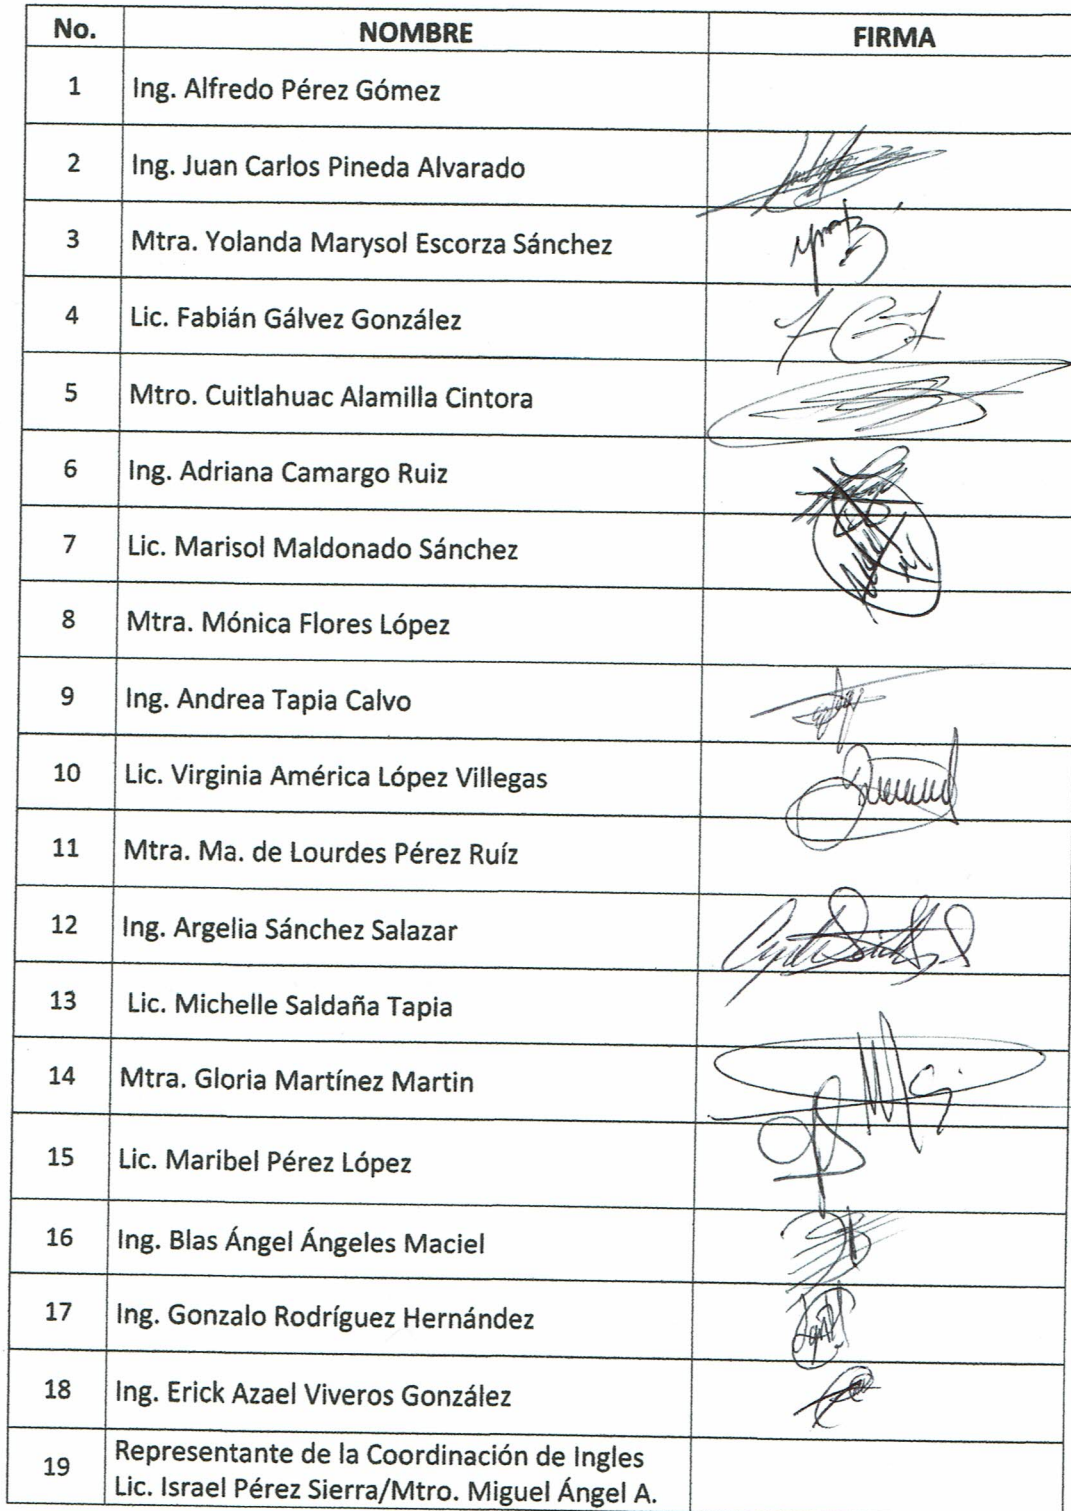 No. NOMBRE FIRMA
1 Ing. Alfredo Pérez Gómez
2 Ing. Juan Carlos Pineda Alvarado
3 Mtra. Yolanda Marysol Escorza Sánchez
4 Lic. Fabián Gálvez González
5 Mtro. Cuitlahuac Alamilla Cintora
6 Ing. Adriana Camargo Ruiz
7 Lic. Marisol Maldonado Sánchez
8 Mtra. Mónica Flores López
9 Ing. Andrea Tapia Calvo
10 Lic. Virginia América López Villegas
11 Mtra. Ma. de Lourdes Pérez Ruíz
12 Ing. Argelia Sánchez Salazar
13 Lic. Michelle Saldaña Tapia
14 Mtra. Gloria Martínez Martin
15 Lic. Maribel Pérez López
16 Ing. Blas Ángel Ángeles Maciel
17 Ing. Gonzalo Rodríguez Hernández
18 Ing. Erick Azael Viveros González
19 Representante de la Coordinación de Ingles
Lic. Israel Pérez Sierra/Mtro. Miguel Ángel A.